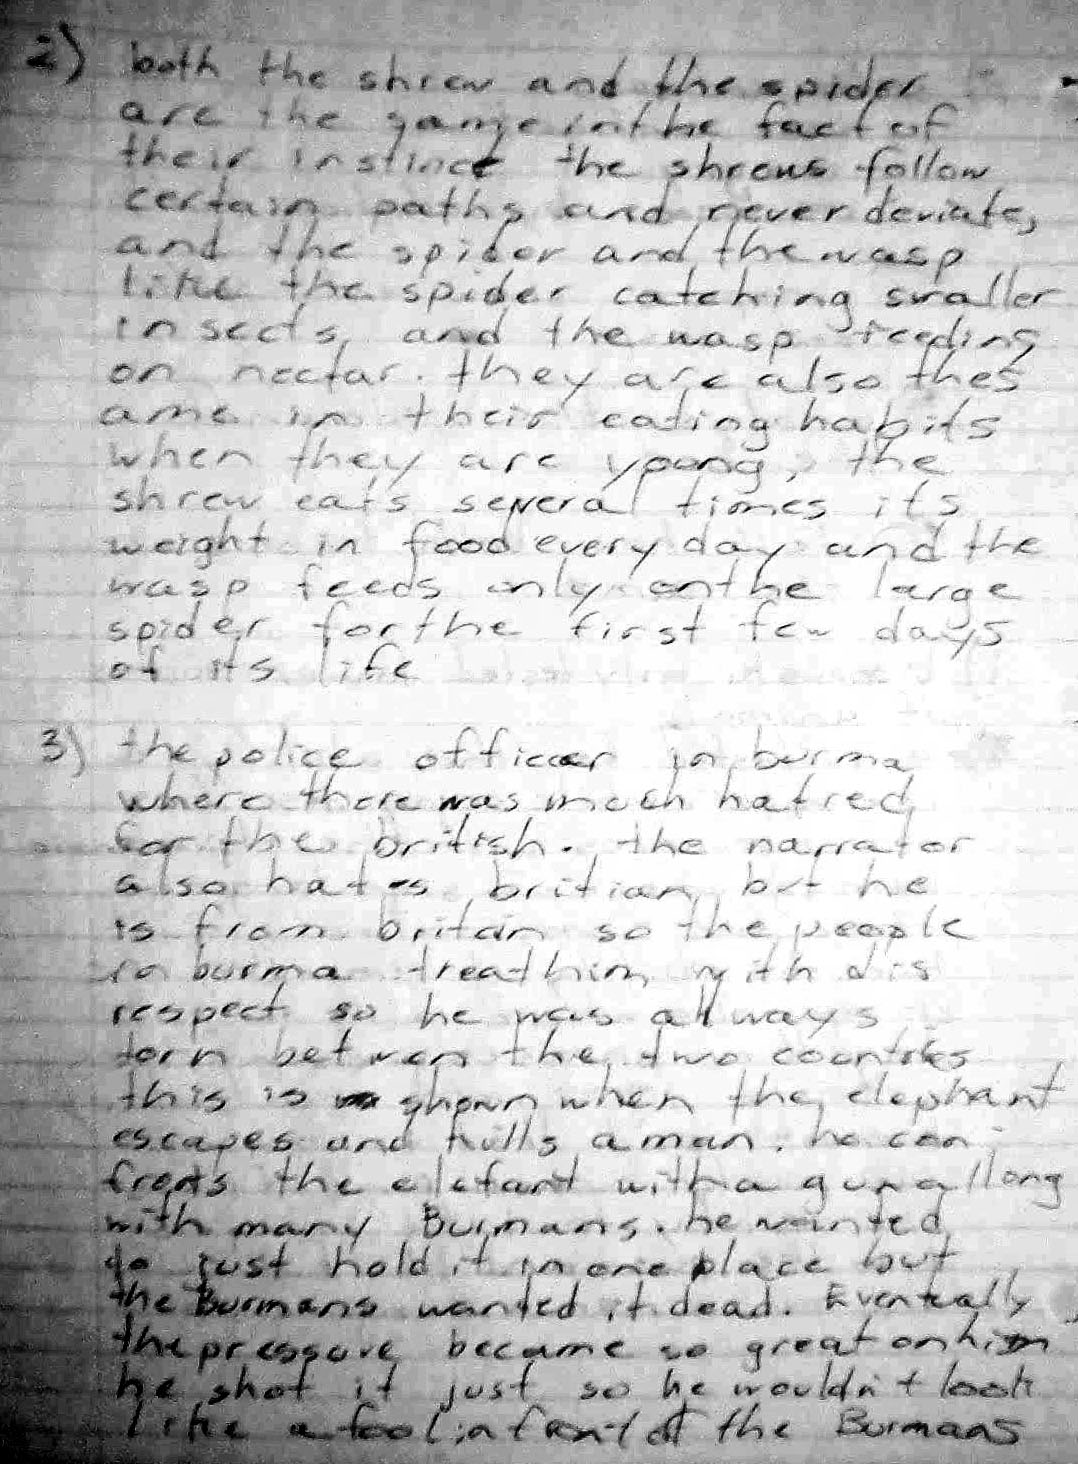 2) both the shrew and the spider
are the same in the fact of
their instinct the shrews follow
certain paths and never deviate,
and the spider and the wasp
like the spider catching smaller
insects, and the wasp feeding
on nectar. they are also thes
ame in their eating habits
when they are young, the
shrew eats several times its
weight in food every day and the
wasp feeds only on the large
spider for the first few days
of its life
3) the police officer in burma
where there was much hatred
for the british. the narrator
also hates britian but he
is from britain so the people
in burma treat him with dis
respect so he was allways
torn between the two countries
this is shown when the elephant
escapes and kills a man. he con
fronts the elefant with a gun allong
with many Burmans. he wanted
to just hold it in one place but
the Burmans wanted it dead. Eventually
the pressure became so great on him
he shot it just so he wouldn't look
like a fool in front of the Burmans